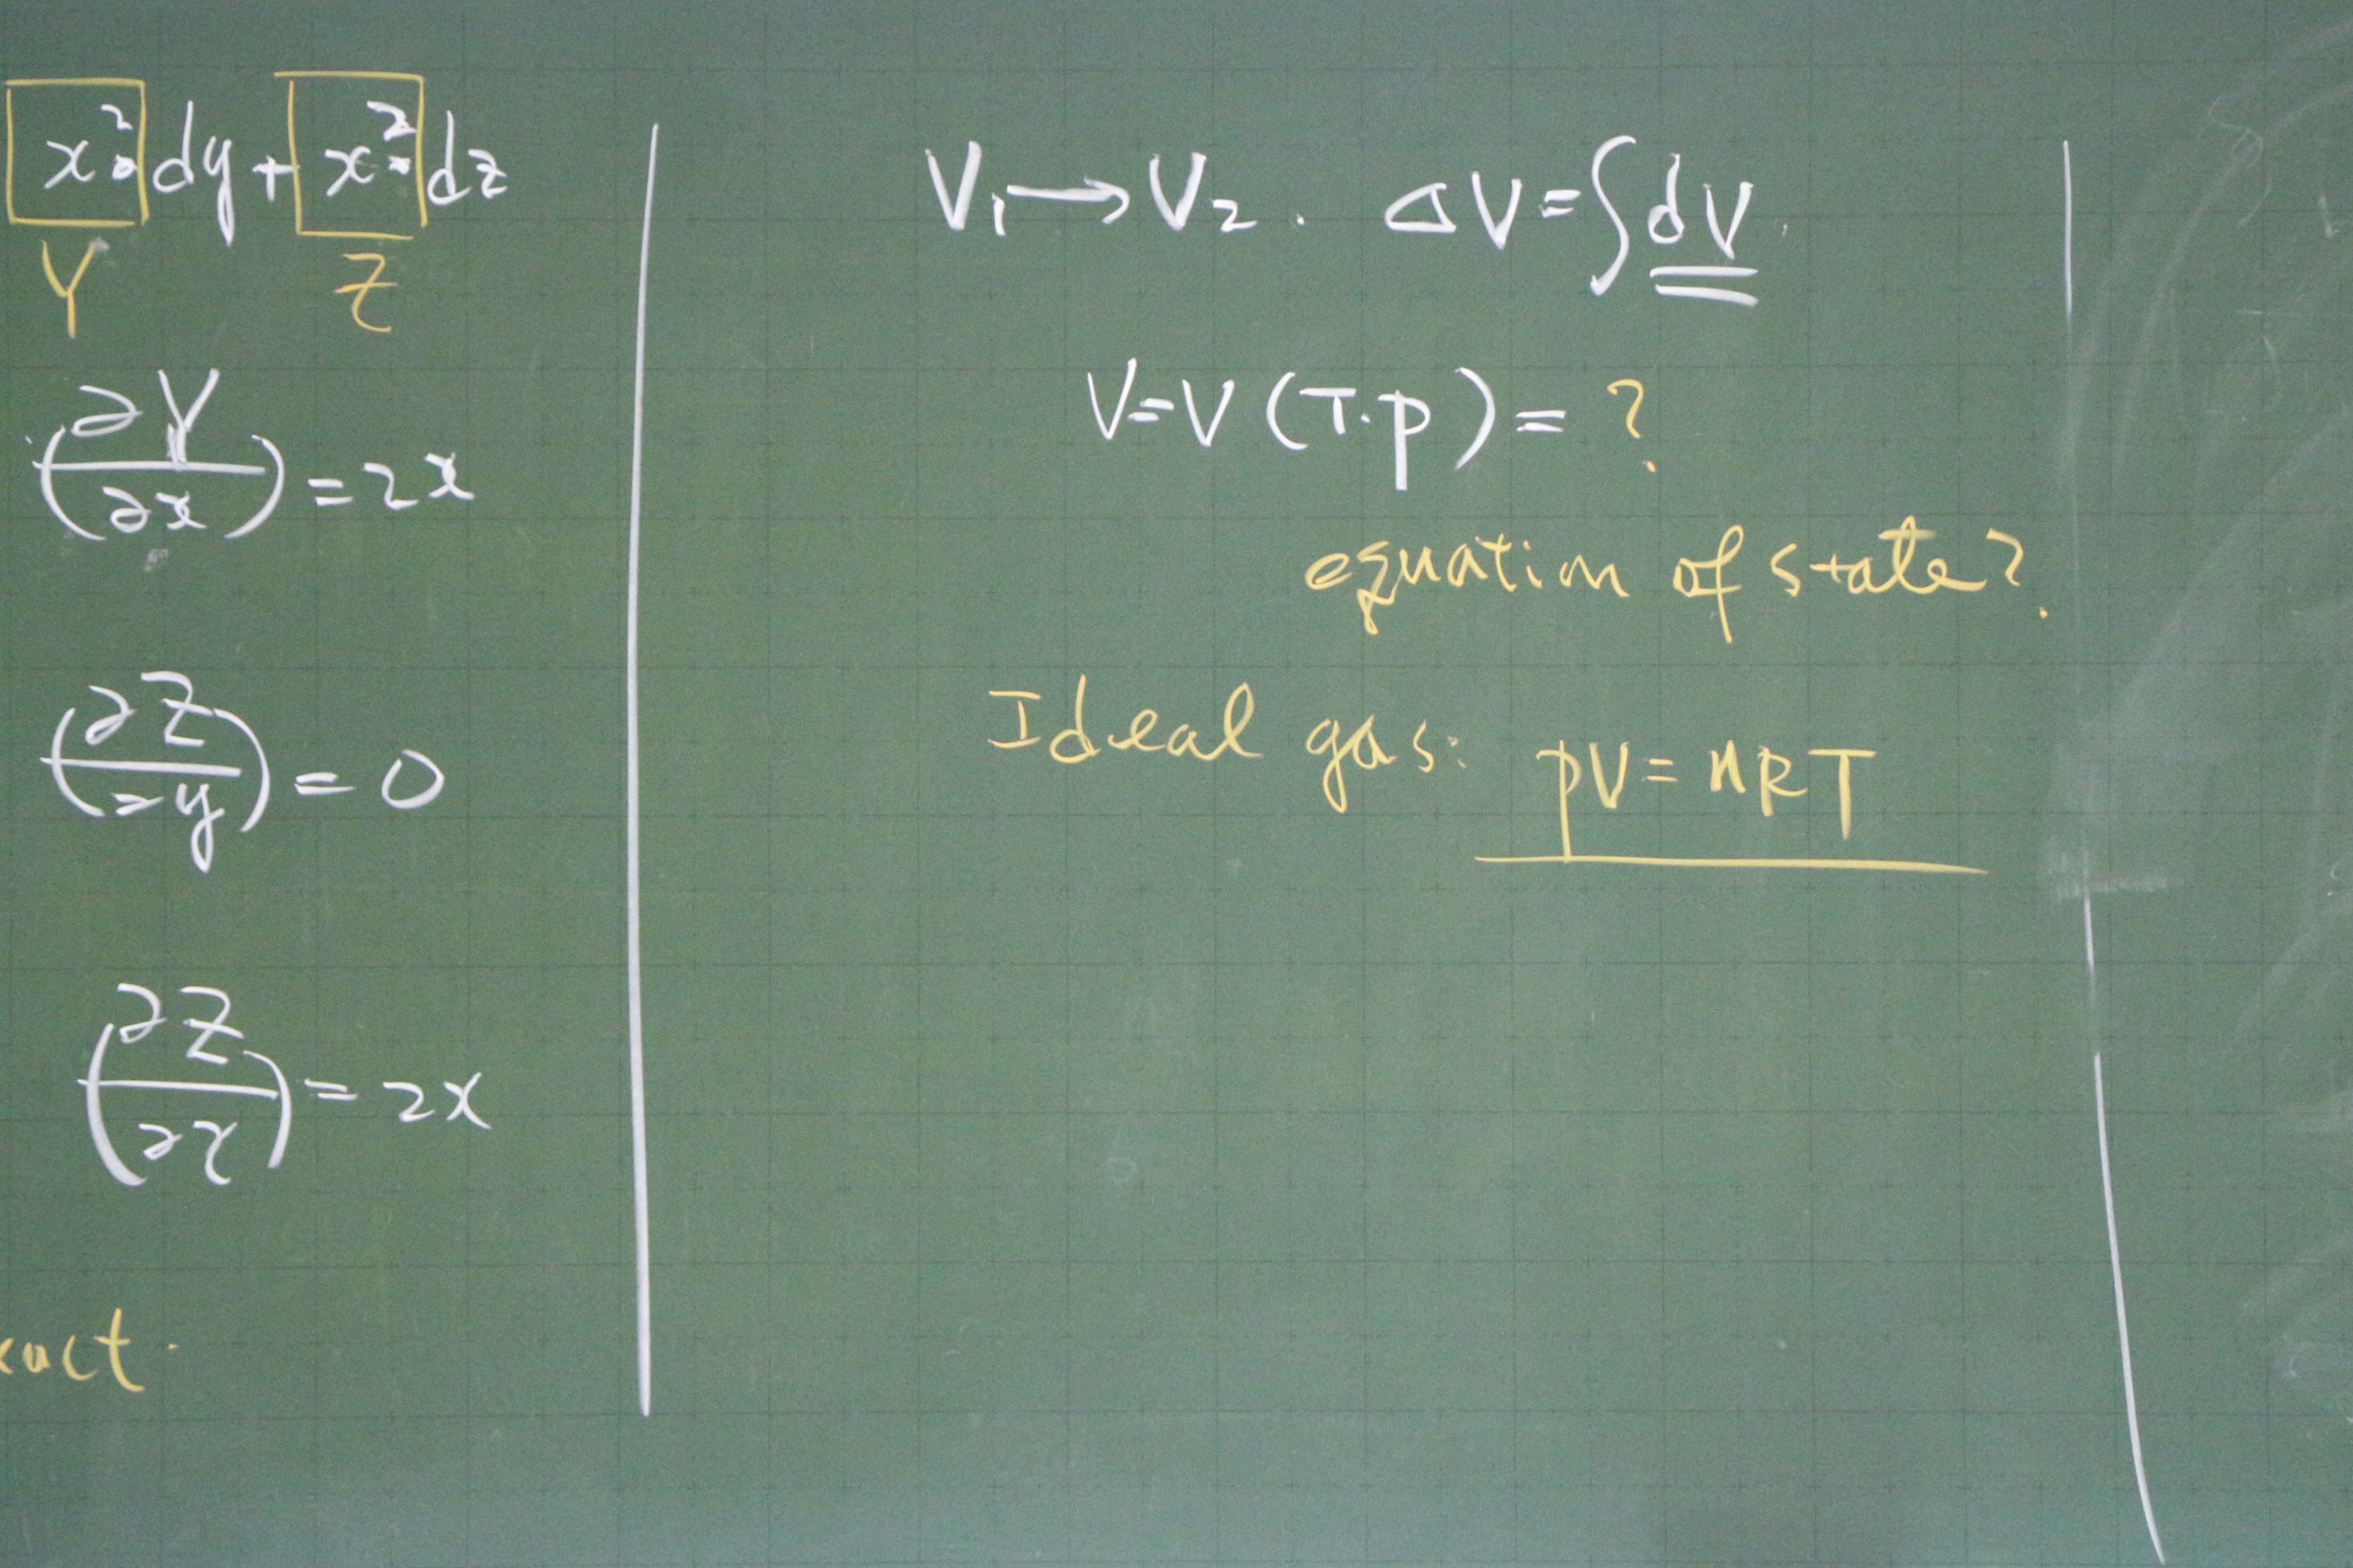 x² dy + x² dz
Y Z
(∂Y/∂x) = 2x
(∂Z/∂y) = 0
(∂Z/∂x) = 2x
xact.
V₁ → V₂ . ΔV = ∫dV.
V = V (T.p) = ?
equation of state?
Ideal gas: pV = nRT